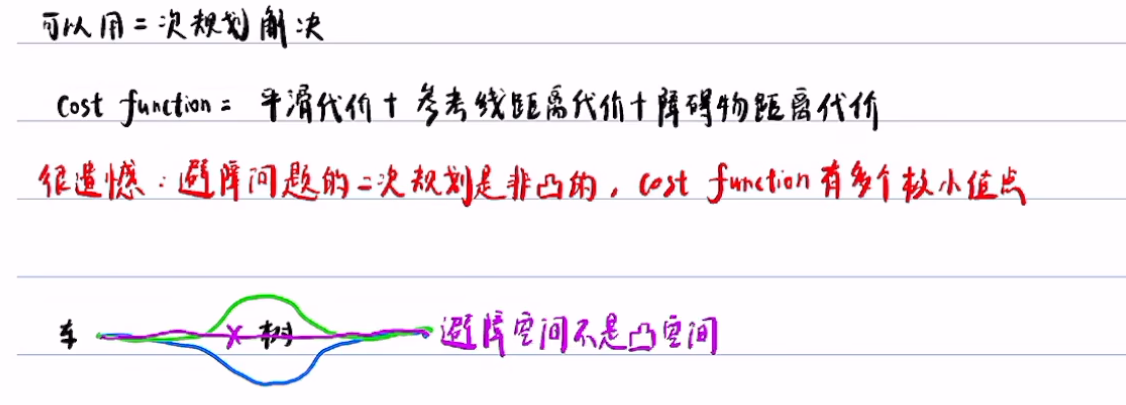 可以用二次规划解决
cost function = 平滑代价 + 参考线距离代价 + 障碍物距离代价
很遗憾：避障问题的二次规划是非凸的，cost function 有多个极小值点
车 × 树 避障空间不是凸空间